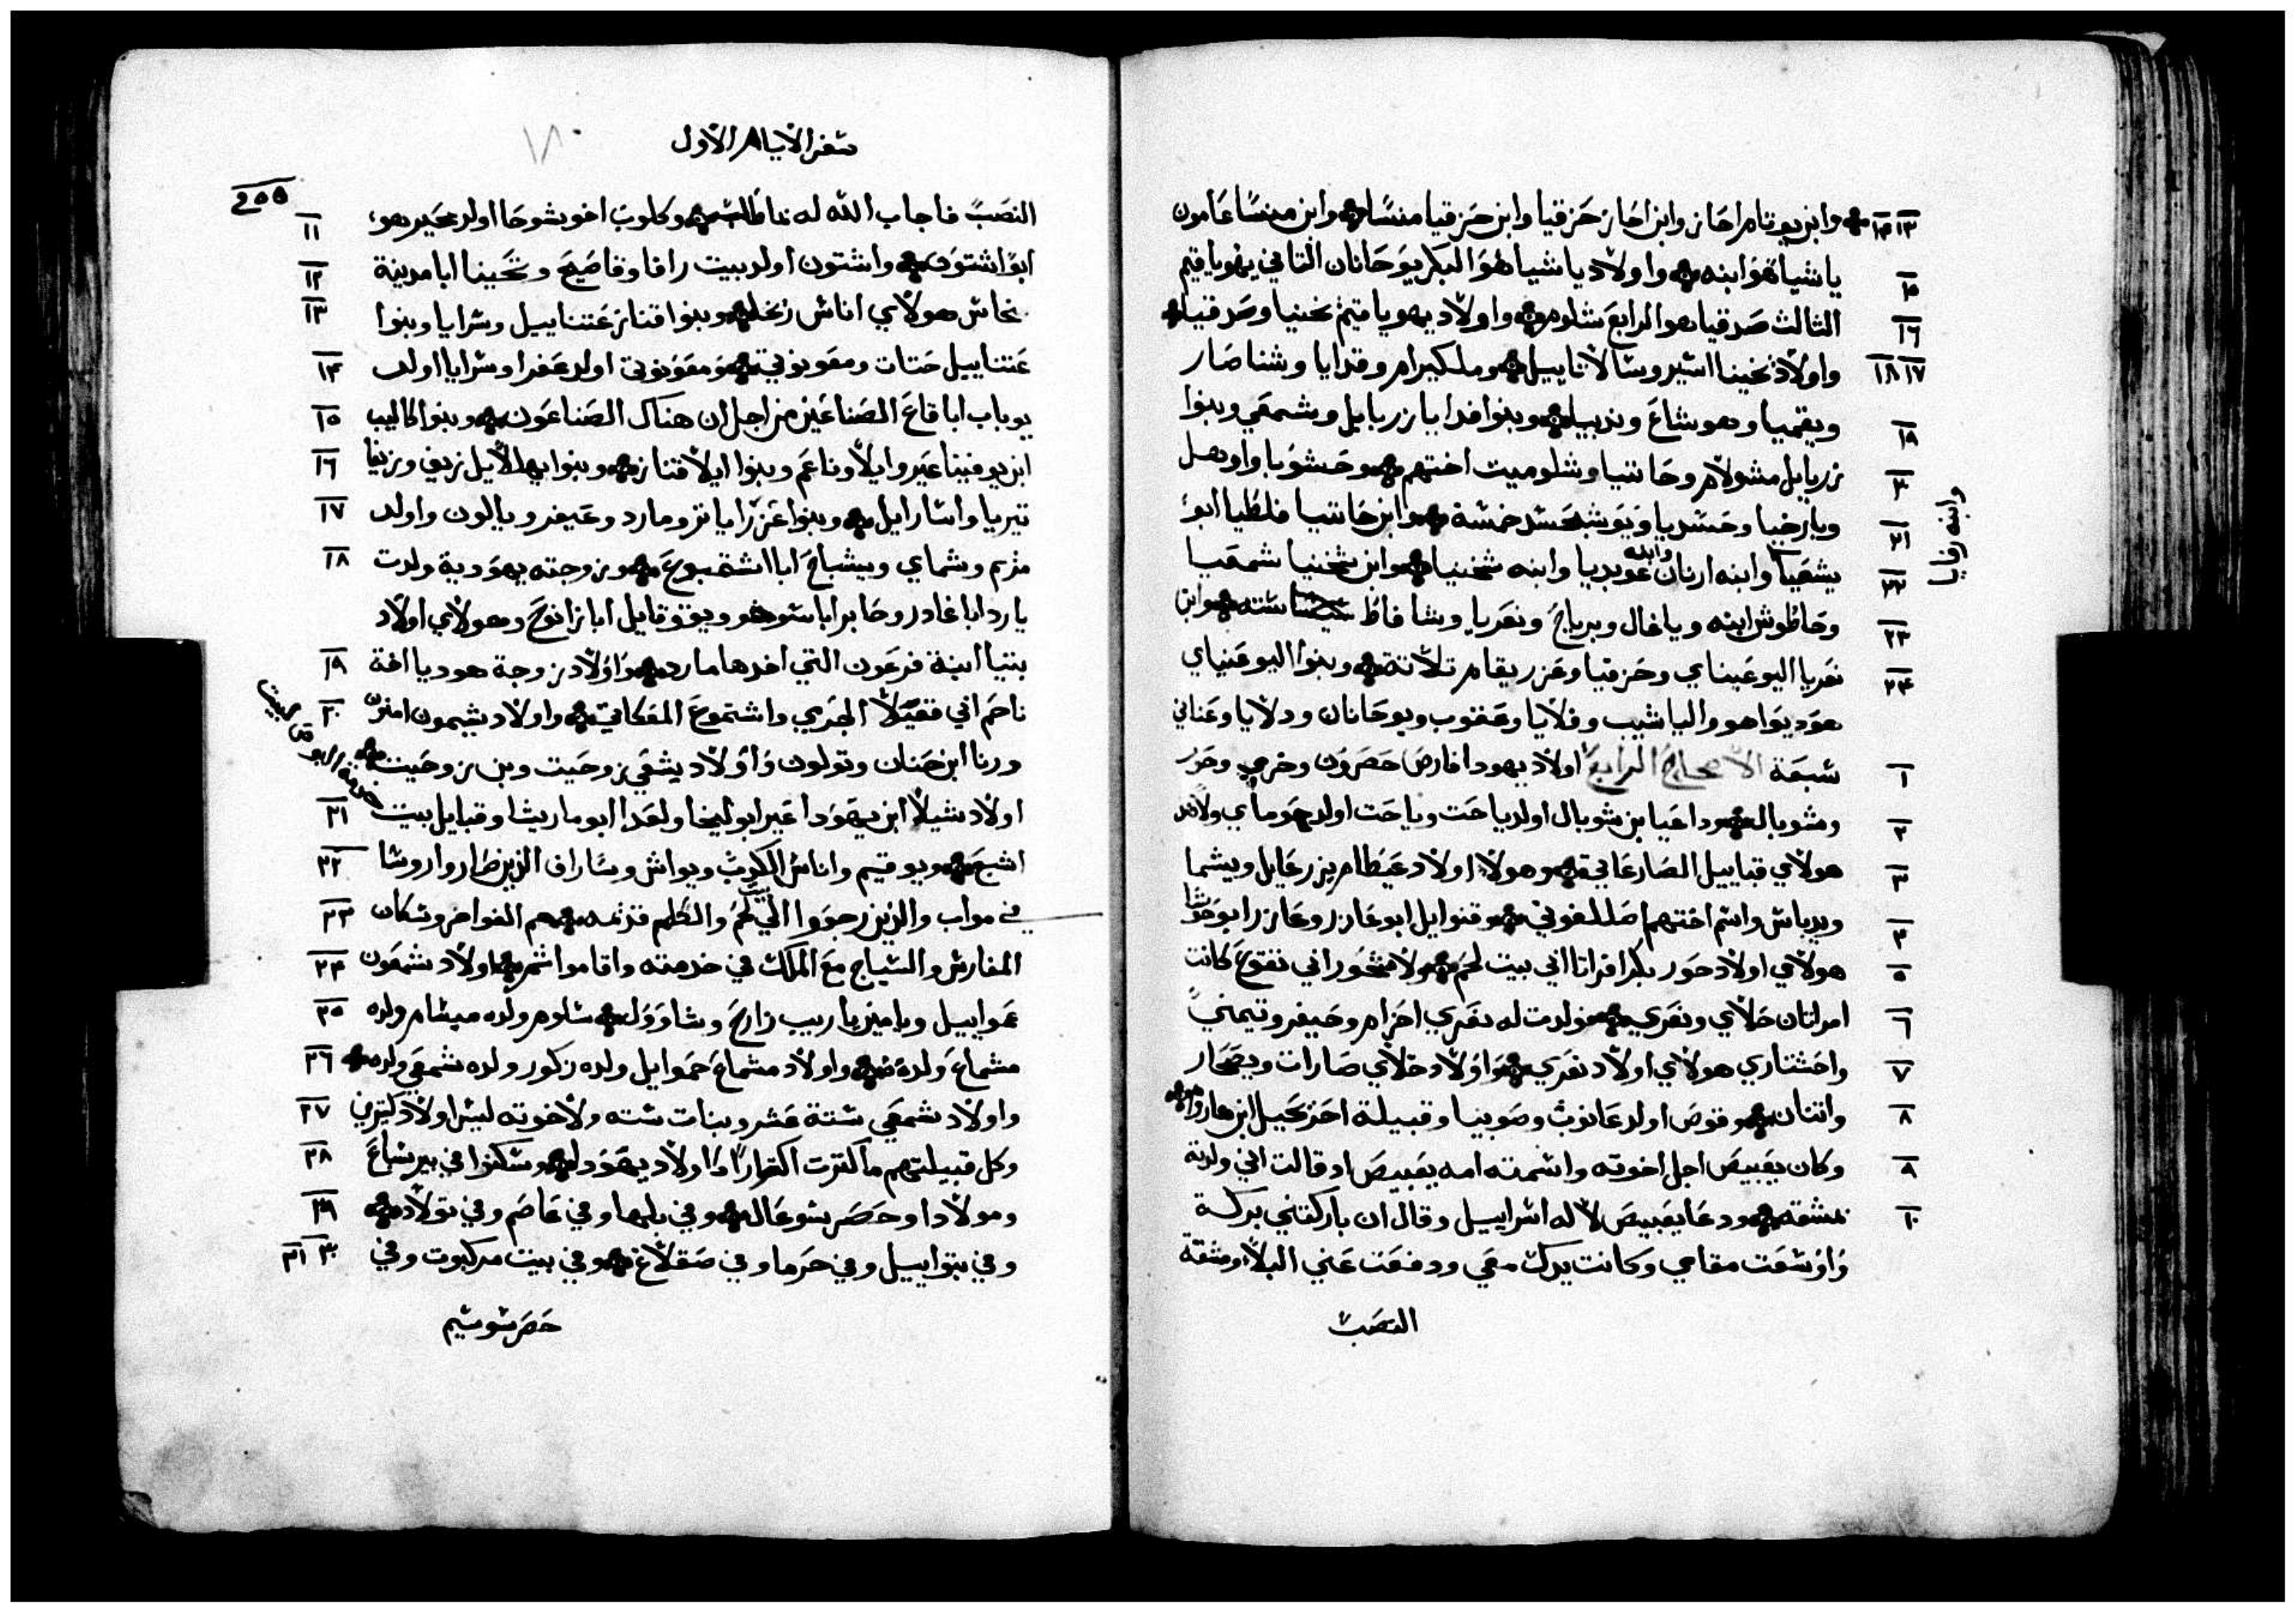 ١٣ ١٤ وابن يوتام احاز وابن احاز حزقيا وابن حزقيا منسا وابن منسا عامون
١٥ ياشياهو ابنه واولاد ياشياهو البكر يوحانان الثاني يهوياقيم
١٦ الثالث صدقياهو الرابع شلوم واولاد يهوياقيم يخنيا وصدقيا
١٧ ١٨ واولاد يخينا اشير وشالاتاييل وملكيرام وفدايا وشناصار
١٩ ويقميا وهوشاع وندبيا وبنوا فدايا زربابل وشمعي وبنوا
٢٠ زربابل مشولام وحانتيا وشلوميت اختهم وحشوبا واوهل
٢١ وبارخيا وحسديا ويوشب حسد خمسة وابن حانتيا فلطيا ابو
٢٢ يشعيا وابنه ارنان وابنه عوبديا وابنه شخنيا وابن شخنيا شمعيا
وابنه رفايا
٢٣ وحاطوش ابنه وياغال وبرياح ونعريا وشافاط ستة وابن
٢٤ نعريا اليوعيناي وحزقيا وعزريقام تلاتة وبنوا اليوعنياي
هوديواهو والياشيب وفلايا وعقوب ويوحانان ودلايا وعناني
١ سبعة الاصحاح الرابع اولاد يهودا فارص حصرون وخرمي وحور
٢ وشوبال وراعيا بن شوبال اولد ياحت وياحت اولد حوماي ولاهد
٣ هولاي قباييل الصارعاني وهولا اولاد عيطام يزرعايل ويشما
٤ ويدباش واسم اختهم اصللفوني وفنوايل ابو عادر وعازر ابو حوشا
٥ هولاي اولاد حور بكر افراتا ابي بيت لحم ولاشحور ابي تقوع كانت
٦ امراتان حلاي ونعري فولدت له نعري احزام وحيفر وتيمني
٧ واحشتاري هولاي اولاد نعري واولاد حلاي صارات ويصحار
٨ واتنان وقوص اولد عانوب وصوبيا وقبيلة احزحيل ابن هاروم
٩ وكان يعبيص اجل اخوته واسمته امه يعبيص اد قالت اني ولدته
١٠ بمشقه ودعا يعبيص لاله اسراييل وقال ان باركتني بركة
واوسعت مقامي وكانت يدك معي ودفعت عني البلا ومشقة
النصب
سفر الايام الاول
١٨٠
٢٥٥
النصب فاجاب الله له ما طلب وكلوب اخو يشوحا اولد محير هو
١١ ابو اشتون
١٢ واشتون اولد بيت رافا وفاصيح وتحينا ابا مدينة
١٣ نحاش هولاي اناس رخل وبنوا قناز عتناييل وسرايا وبنوا
١٤ عتناييل حتات ومعونوتي ومعونوتي اولد عفرا وسرايا اولد
١٥ يوباب ابا قاع الصناعين من اجل ان هناك الصناعون وبنوا كاليب
١٦ ابن يوفينا عير وايلا وناعم وبنوا ايلا قناز وبنوا يهللاييل زيف وزيفا
١٧ تيريا واسارايل وبنوا عزرايا تر ومارد وعيفر ويالون واولد
١٨ مريم وشماي ويشباح ابا اشتموع وزوجته يهودية ولدت
يارد ابا غادر وحابر ابا سوخو ويقوقايل ابا زانوح وهولاي اولاد
١٩ بتيا ابنة فرعون التي اخدها مارد واولاد زوجة هوديا اخة
٢٠ ناحم ابي قعيلا الجرمي واشتموع المعكاتي واولاد شيمون امنون
ورنا ابن حنان وتولون واولاد يشعي زوحيت وبن زوحيت
٢١ اولاد شيلا ابن يهودا عير ابو ليخا ولعدا ابو ماريشا وقبايل بيت
٢٢ اشبع ويوقيم واناس الكوب ويواش وساراف الذين صاروا روسا
٢٣ في مواب والذين رجعوا الي بيت لحم والكلام قديمه هم الفواخر وسكان
٢٤ المفارش والسياج مع الملك في خدمته واقاموا تم اولاد شمعون
٢٥ نمواييل ويامين ياريب زارح وشاوول شلوم ولده ميسام ولده
٢٦ مشماع ولده واولاد مشماع حموايل ولده زكور ولده شمعي ولده
٢٧ واولاد شمعي ستة عشر وبنات سته ولاخوته ليس اولاد كتيرين
٢٨ وكل قبيلتهم ما كترت اكتارا اولاد يهودا وسكنوا في بير شباع
٢٩ ومولادا وحصر شوعال وفي بلها وفي عاصم وفي تولاد
٣٠ ٣١ وفي بتواييل وفي حرما وفي صقلاغ وفي بيت مركبوت وفي
حصر سوسيم